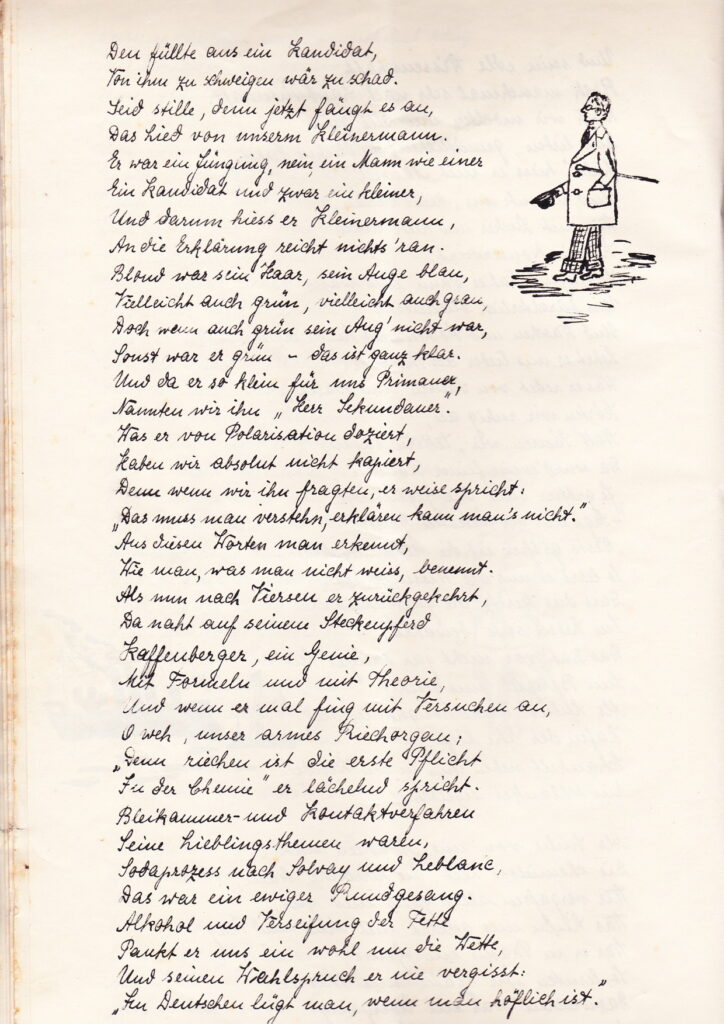 Den füllte aus ein Kandidat,
Von ihm zu schweigen wär zu schad.
Seid stille, denn jetzt fängt es an,
Das Lied von unserm Kleinermann.
Er war ein Jüngling, nein, ein Mann wie einer
Ein Kandidat und zwar ein kleiner,
Und darum hiess er Kleinermann,
An die Erklärung reicht nichts 'ran.
Blond war sein Haar, sein Auge blau,
Vielleicht auch grün, vielleicht auch grau,
Doch wenn auch grün sein Aug' nicht war,
Sonst war er grün - das ist ganz klar.
Und da er so klein für uns Primaner,
Nannten wir ihn „Herr Sekundaner".
Was er von Polarisation doziert,
Haben wir absolut nicht kapiert,
Denn wenn wir ihn fragten, er weise spricht:
„Das muss man verstehn, erklären kann man's nicht."
Aus diesen Worten man erkennt,
Wie man, was man nicht weiss, benennt.
Als nun nach Viersen er zurückgekehrt,
Da naht auf seinem Steckenpferd
Kaffenberger, ein Genie,
Mit Formeln und mit Theorie,
Und wenn er mal fing mit Versuchen an,
O weh, unser armes Riechorgan;
„Denn riechen ist die erste Pflicht
In der Chemie" er lächelnd spricht.
Bleikammer- und Kontaktverfahren
Seine Lieblingsthemen waren,
Sodaprozess nach Solvay und Leblanc,
Das war ein ewiger Rundgesang.
Alkohol und Verseifung der Fette
Paukt er uns ein wohl um die Wette,
Und seinen Wahlspruch er nie vergisst:
„Im Deutschen lügt man, wenn man höflich ist."